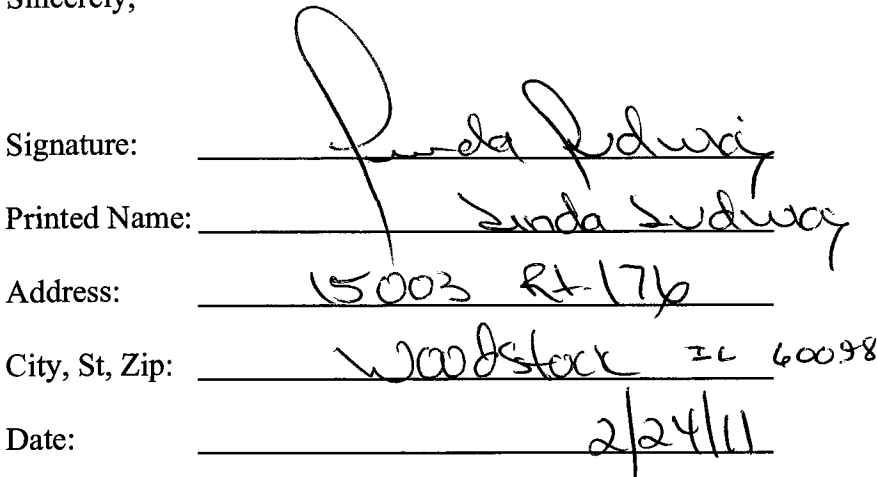 Sincerely,
Signature: Linda Ludwig
Printed Name: Linda Ludwig
Address: 15003 Rt. 176
City, St, Zip: Woodstock IL 60098
Date: 2/24/11